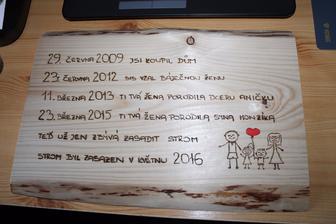 29. ČERVNA 2009 JSI KOUPIL DŮM
23. ČERVNA 2012 SIS VZAL BÁJEČNOU ŽENU
11. BŘEZNA 2013 TI TVÁ ŽENA PORODILA DCERU ANIČKU
23. BŘEZNA 2015 TI TVÁ ŽENA PORODILA SYNA HONZÍKA
TEĎ UŽ JEN ZBÝVÁ ZASADIT STROM
STROM BYL ZASAZEN V KVĚTNU 2016